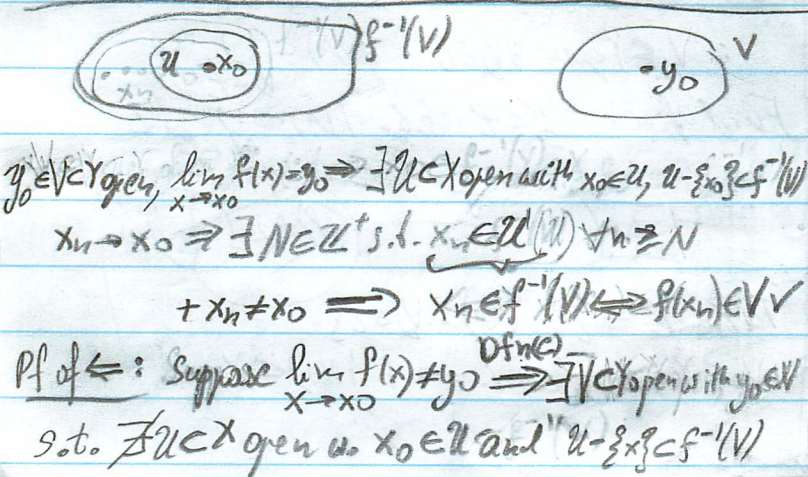 U •x₀ f⁻¹(V) •y₀ V
xn
y₀∈V⊂Y open, lim f(x)=y₀ ⇒ ∃U⊂X open with x₀∈U, U-{x₀}⊂f⁻¹(V)
x→x₀
xn→x₀ ⇒ ∃N∈ℤ⁺ s.t. xn∈U ∀n≥N
+ xn≠x₀ ⟹ xn∈f⁻¹(V) ⟺ f(xn)∈V ✓
Pf of ⇐: Suppose lim f(x)≠y₀ ⟹ ∃V⊂Y open with y₀∈V
x→x₀
s.t. ∄U⊂X open w. x₀∈U "and" U-{x}⊂f⁻¹(V)